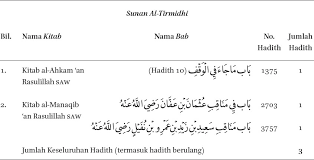 Sunan Al-Tirmidhi
Bil. Nama Kitab Nama Bab No. Hadith Jumlah Hadith
1. Kitab al-Ahkam 'an Rasulillah SAW (Hadith 10) بَاب مَا جَاءَ فِي الْوَقْفِ 1375 1
2. Kitab al-Manaqib 'an Rasulillah SAW بَاب مَنَاقِبِ عُثْمَانَ بْنِ عَفَّانَ رَضِيَ اللَّهُ عَنْهُ 2703 1
بَاب مَنَاقِبِ سَعِيدِ بْنِ زَيْدِ بْنِ عَمْرِو بْنِ نُفَيْلٍ رَضِيَ اللَّهُ عَنْهُ 3757 1
Jumlah Keseluruhan Hadith (termasuk hadith berulang) 3